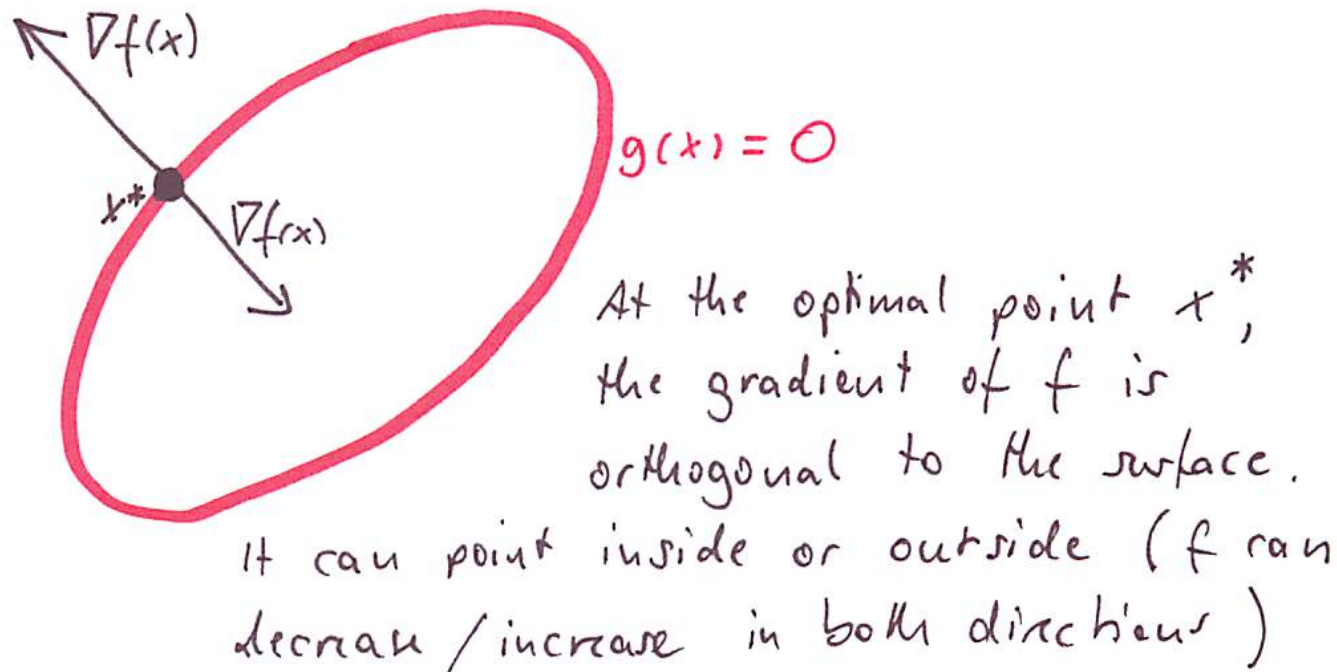 ∇f(x)
g(x) = 0
x*
∇f(x)
At the optimal point x*,
the gradient of f is
orthogonal to the surface.
It can point inside or outside (f can
decrease/increase in both directions)